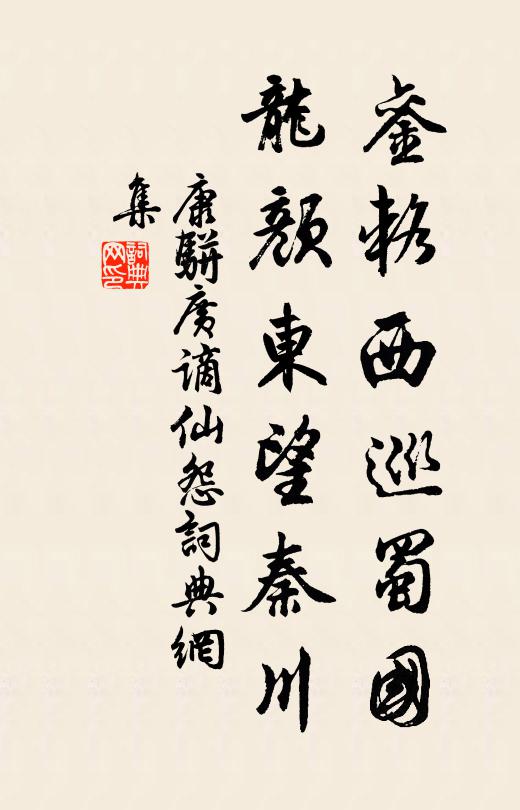 鑾輅西巡蜀國
龍顏東望秦川
康駢廣謫仙怨詞典網
集
詞典網印